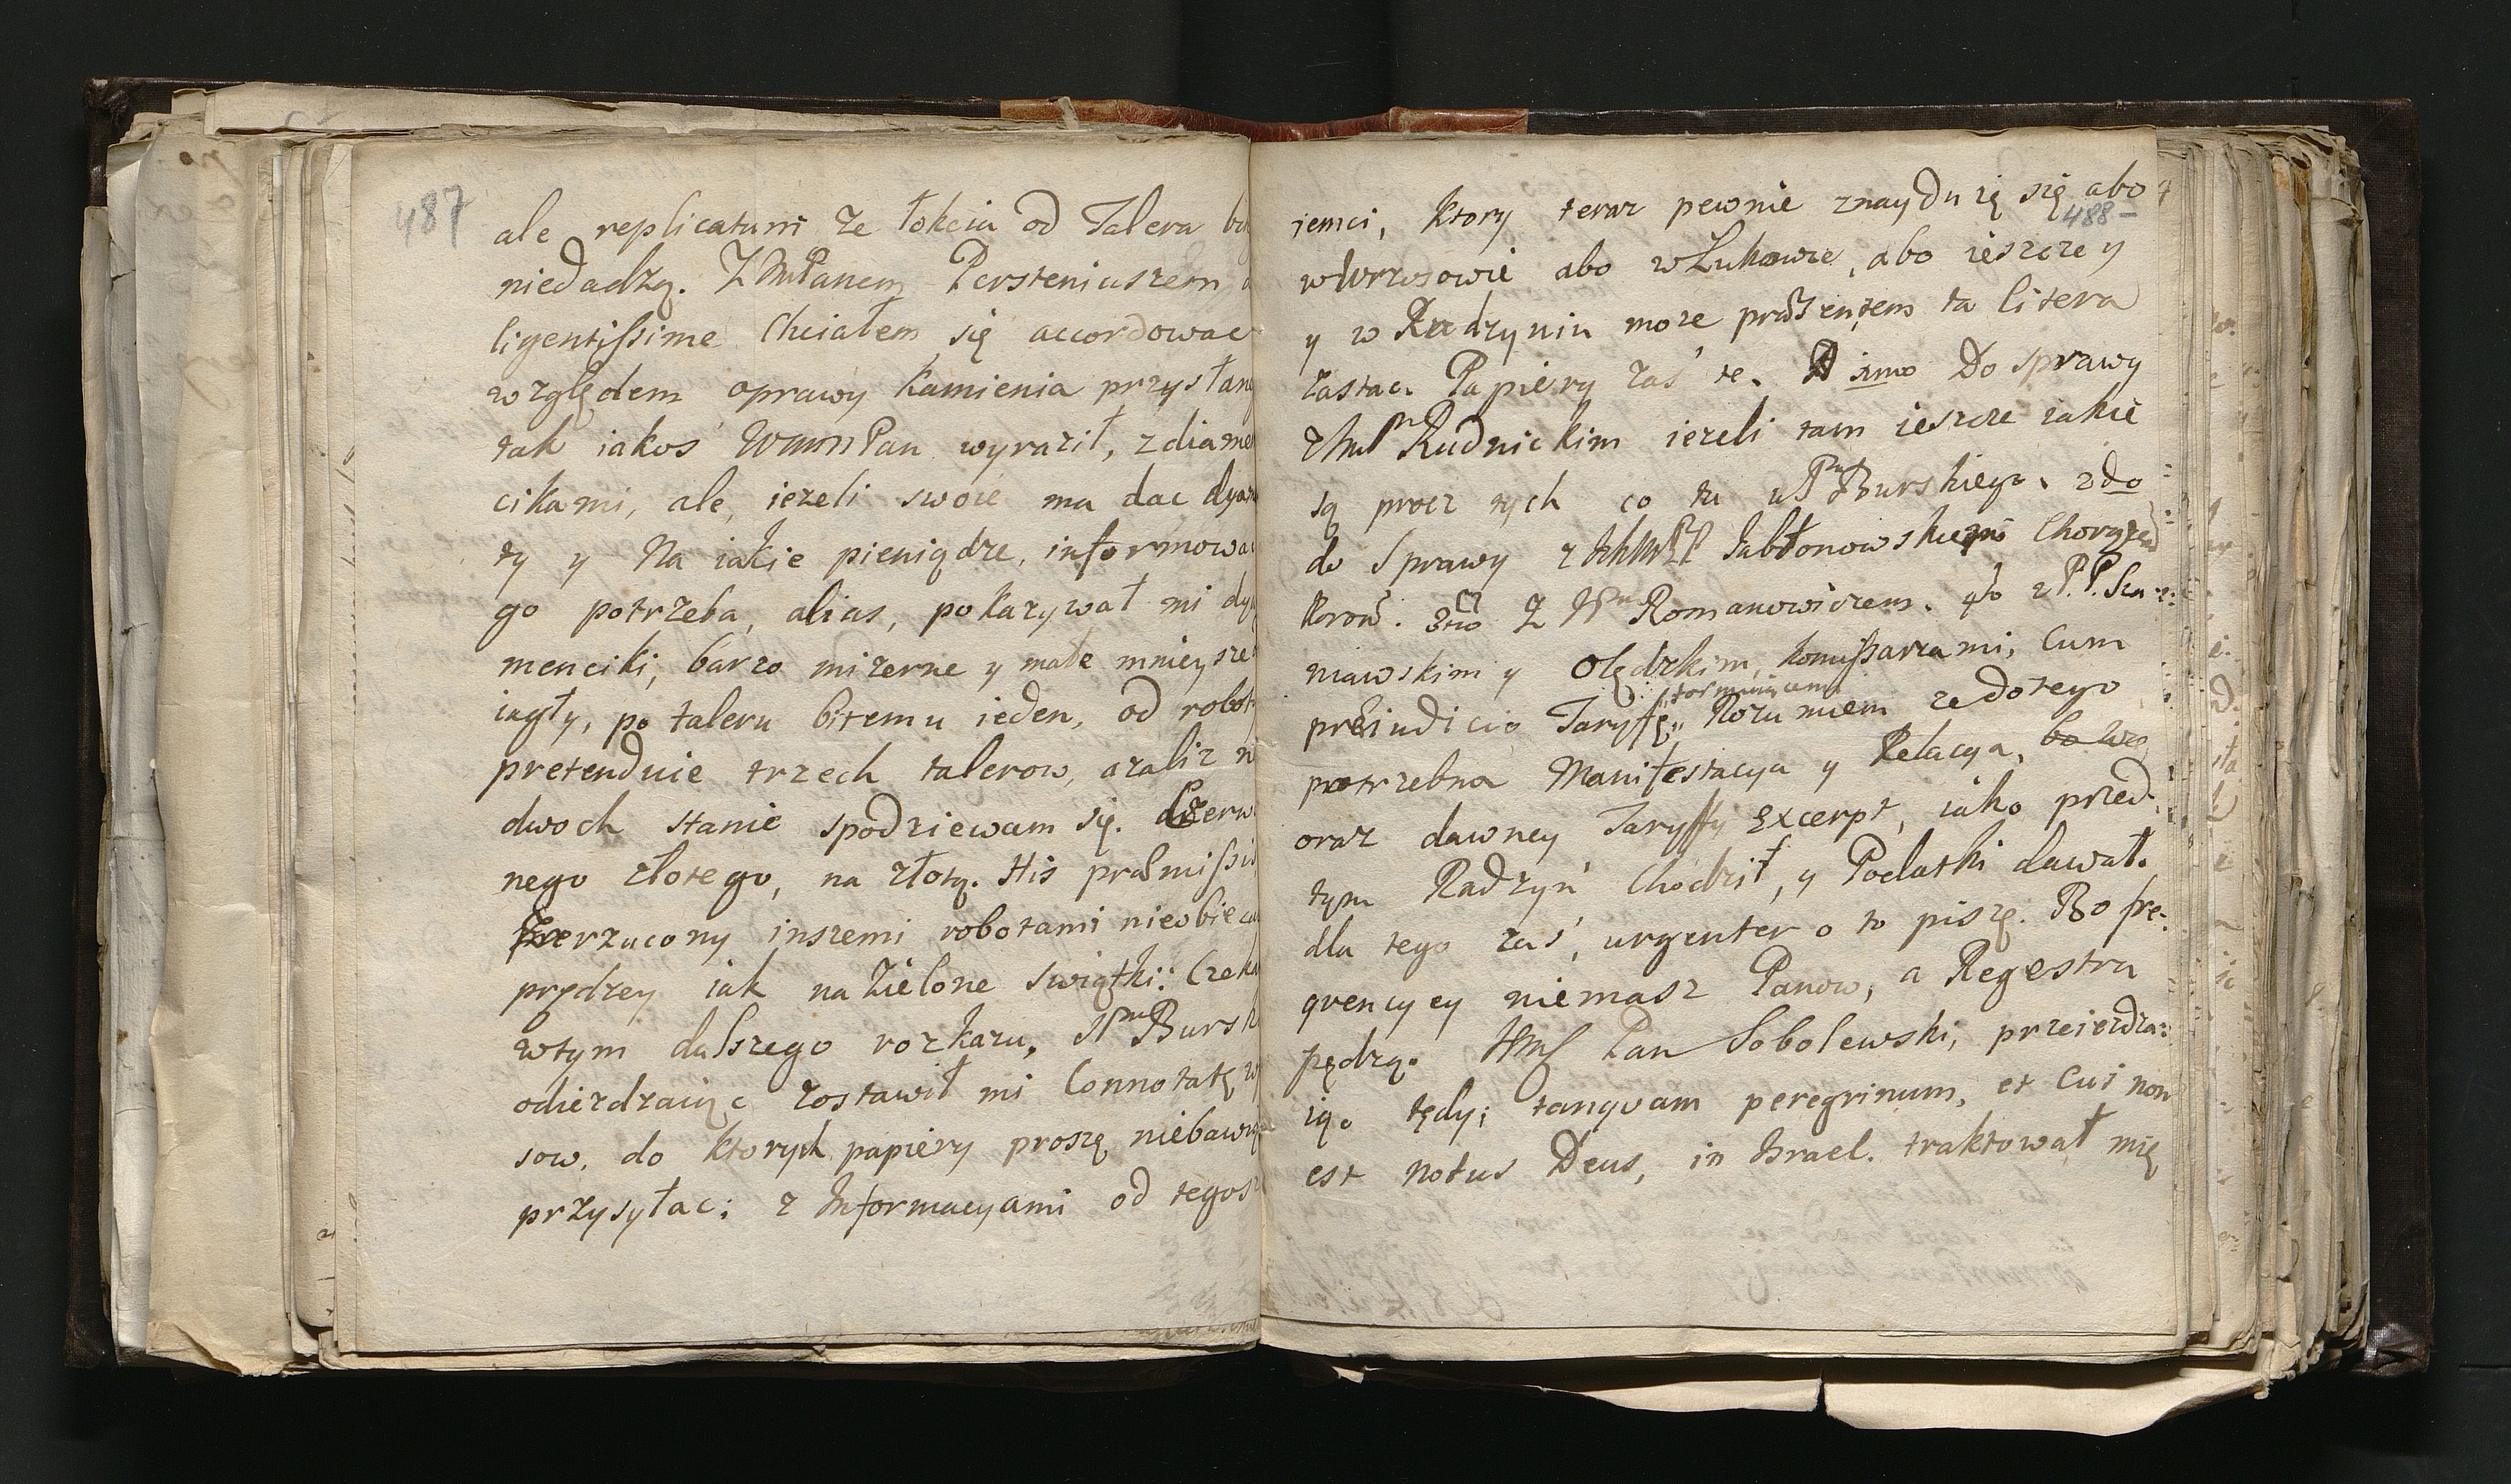 487
ale replicatum ze łokcia od Talera
niedadzą. Z ImPanem Persteniuszem
ligentissime Chciałem się accordowac
względem oprawy kamienia przysłane
tak iakos WmmPan wyraził, z diame
cikami, ale, iezeli swoie ma dac dya
ty y Na iakie pieniądze, informowac
go potrzeba, alias, pokazywał mi dy
menciki, barzo mizerne y małe mnieysze
iagły, po taleru bitemu ieden, od robot
pretenduie trzech talerow, azaliz n
dwoch stanie spodziewam się. Czerw
nego złotego, na złotą. His præmissi
przerzucony inszemi robotami nieobiecu
prędzey iak na Zielone swiątki: Czeka
wtym dalszego rozkazu. Burs
odiezdzaiąc zostawił mi Connotatę
sow. do ktorych papiery proszę niebaw
przysyłac; z Informacyami od tegos
488
iemci, ktory teraz pewnie znayduię się abo
wWrzosowie abo wŁukowie, abo ieszcze y
y w Radzyniu moze præsentem ta litera
zastac. Papiery zaś te. 1imo Do sprawy
Rudnickim iezeli tam ieszcze iakie
są procz tych co tu u Pna Burskiego. 2do
do Sprawy z Jabłonowskiemi Chorąze
Koron. 3tio Z Romanowiczem. 4to z P.P. Szu:
niawskim y Olędzkim, komissarzami, Cum
formuiącemi
præiudicio Taryffę. Rozumiem ze do tego
potrzebna Manifestacya y Relacya, bo we
oraz dawney Taryffy Excerpt, iako przed
tym Radzyń Chodził, y Podatki dawał.
dla tego zaś, urgenter o to piszę. Bo fre:
qvencyey niemasz Panow, a Regestra
pędzą. Imć Pan Sobolewski, przeiezdza:
ią. tędy; tanqvam peregrinum, et Cui non
est notus Deus, in Israel. traktował mię